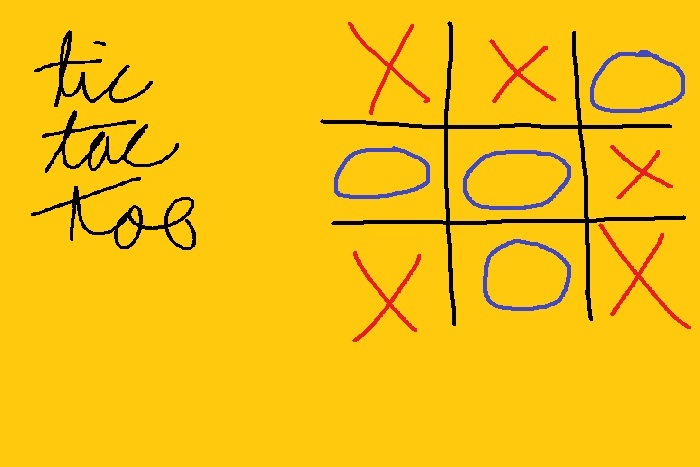 tic
tac
Toe
X X O
O O X
X O X